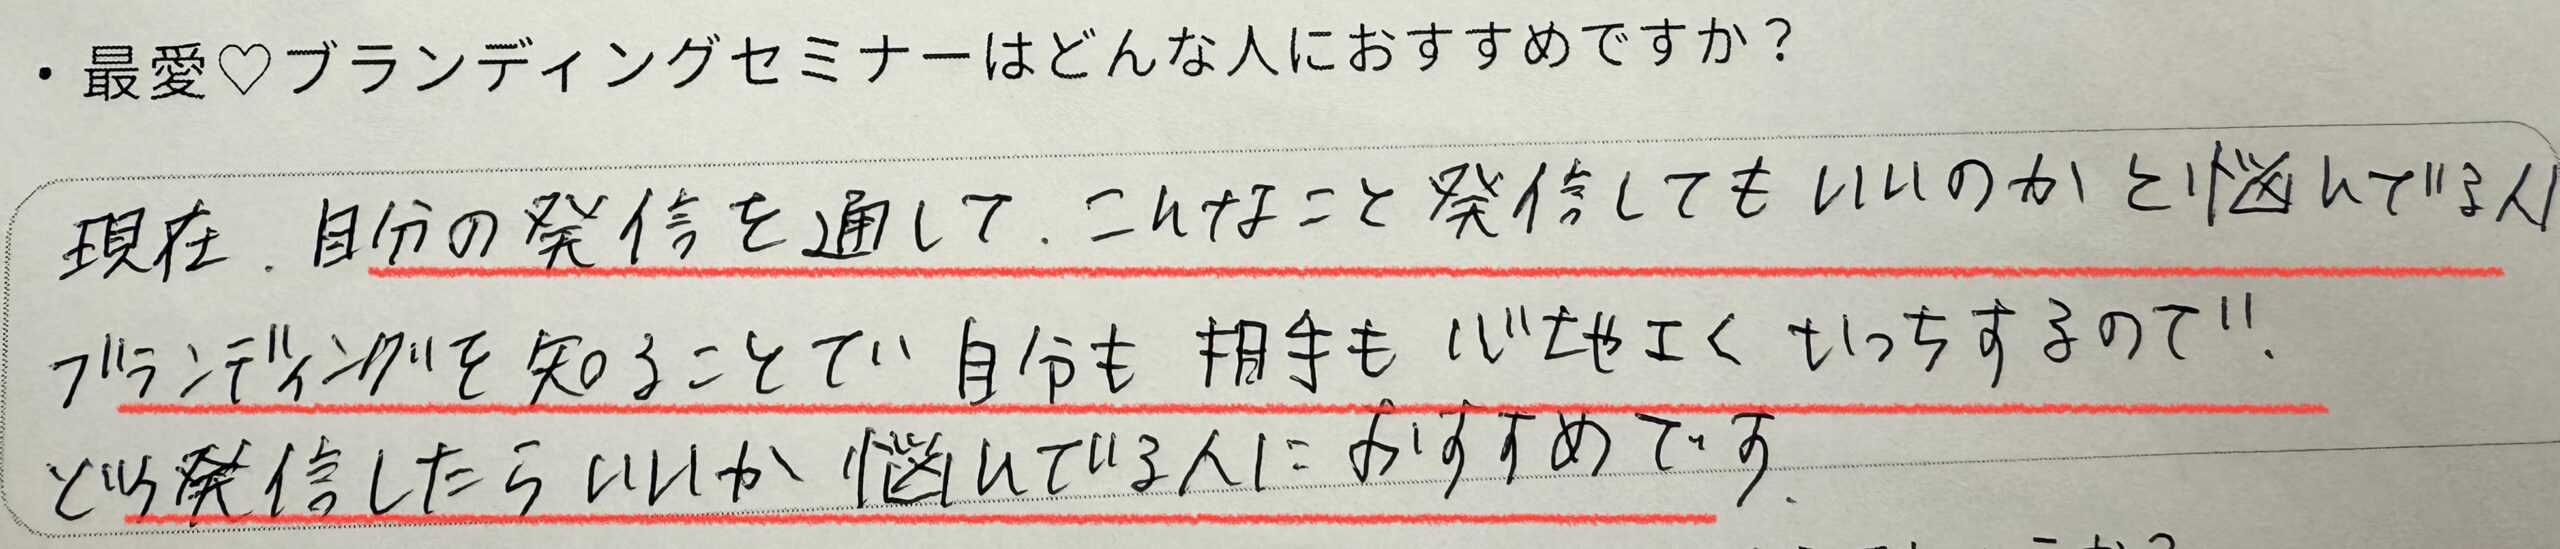 ・最愛♡ブランディングセミナーはどんな人におすすめですか？
現在、自分の発信を通して、こんなこと発信してもいいのかと悩んでいる人
ブランディングを知ることで、自分も相手も心地よく マッチするので、
どう発信したらいいか悩んでいる人におすすめです。